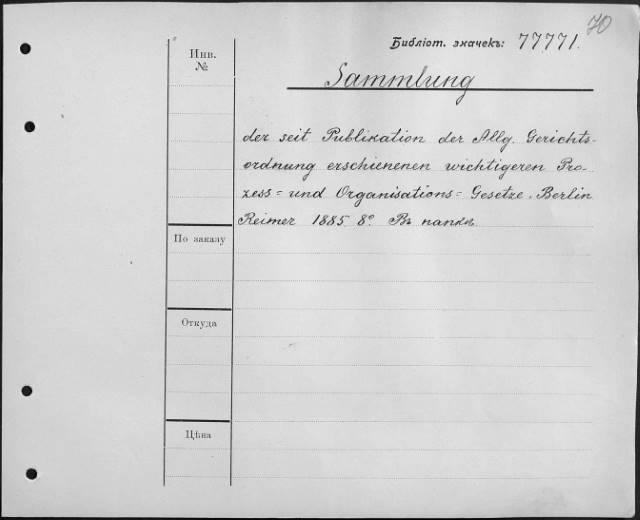 70
Библіот. значекъ: 77771.
Инв.
№
Sammlung
der seit Publikation der Allg. Gerichts-
ordnung erschienenen wichtigeren Pro-
zess= und Organisations= Gesetze. Berlin
Reimer 1885 8º. Въ папкѣ.
По заказу
Откуда
Цѣна